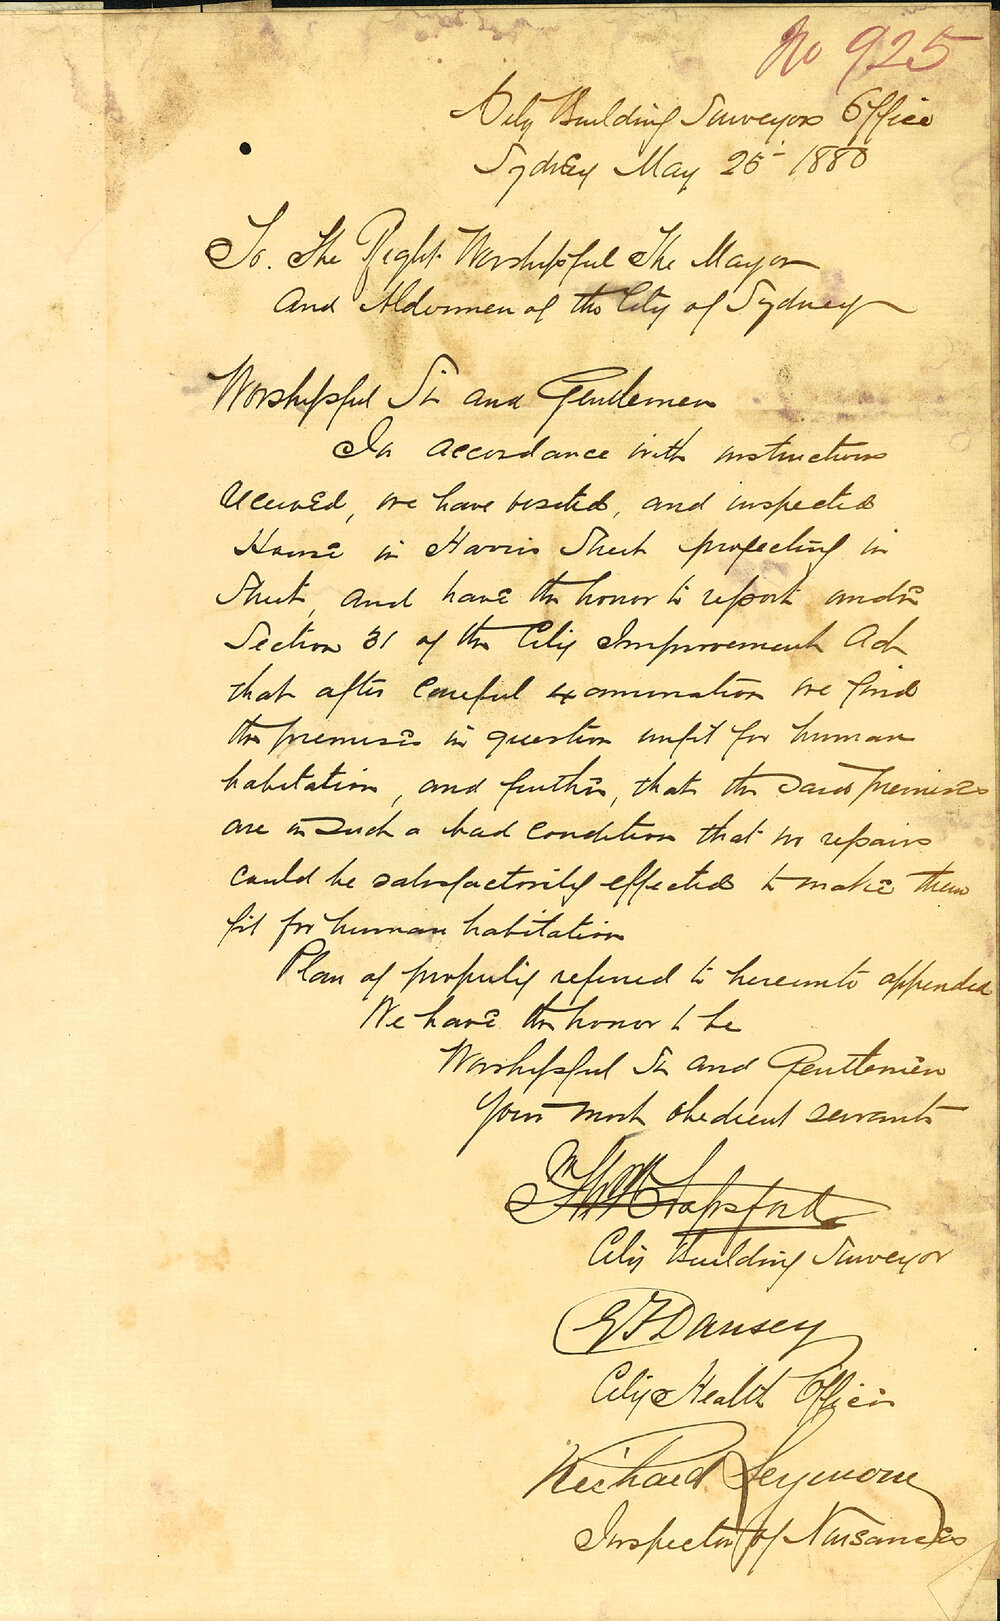 No 925
City Building Surveyors Office
Sydney May 25 1880
To. The Right Worshipful The Mayor
And Aldermen of the City of Sydney
Worshipful Sir and Gentlemen
In accordance with instructions
received, we have visited, and inspected
House in Harris Street projecting in
Street, and have the honor to report under
Section 31 of the City Improvement Act
that after careful examination we find
the premises in question unfit for human
habitation, and further, that the said premises
are in such a bad condition that no repairs
could be satisfactorily effected to make them
fit for human habitation
Plan of property referred to hereunto appended
We have the honor to be
Worshipful Sir and Gentlemen
Your most obedient servants
Sapsford
City Building Surveyor
G F Dansey
City Health Officer
Richard Seymour
Inspector of Nuisances